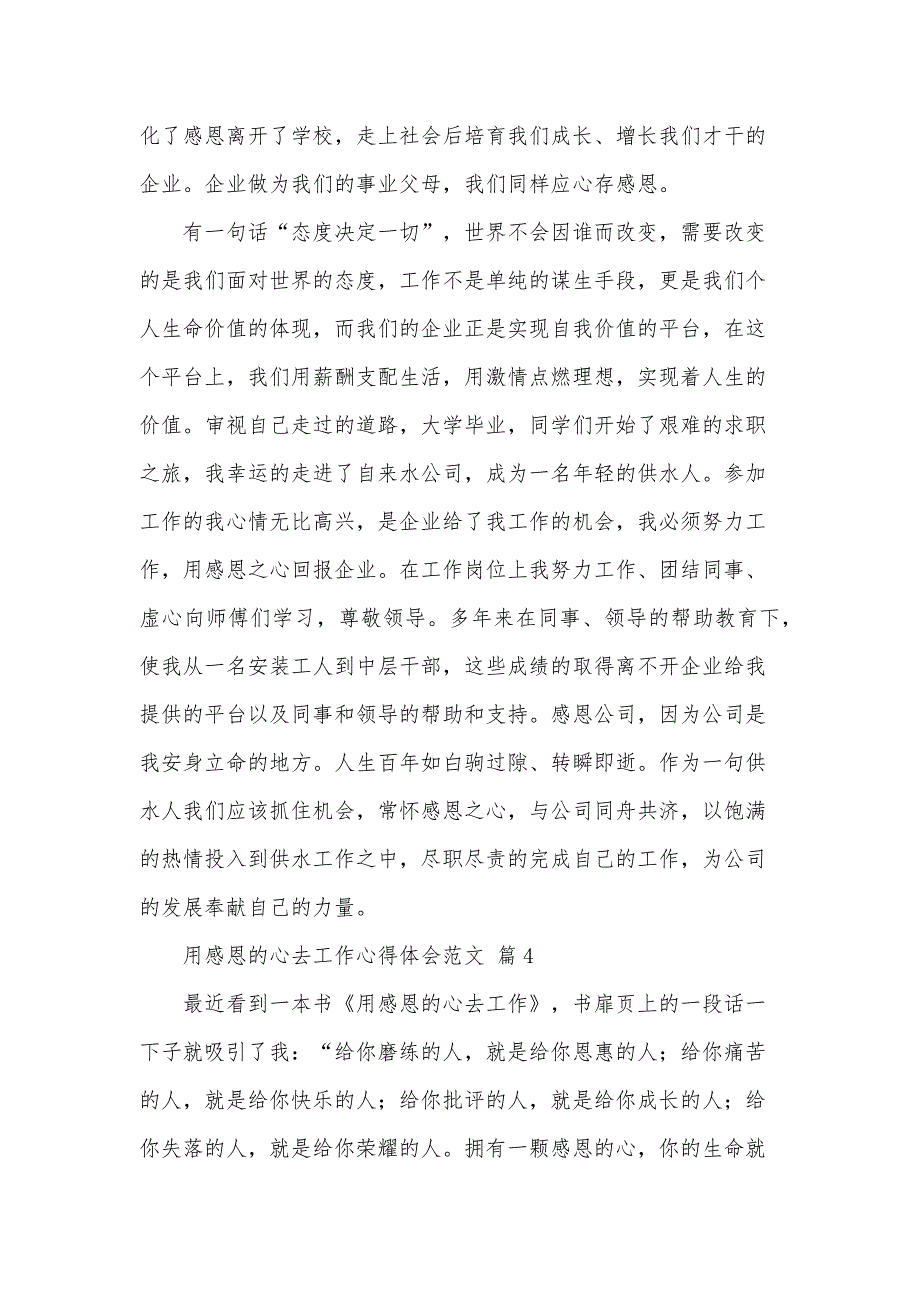 化了感恩离开了学校，走上社会后培育我们成长、增长我们才干的
企业。企业做为我们的事业父母，我们同样应心存感恩。
有一句话“态度决定一切”，世界不会因谁而改变，需要改变
的是我们面对世界的态度，工作不是单纯的谋生手段，更是我们个
人生命价值的体现，而我们的企业正是实现自我价值的平台，在这
个平台上，我们用薪酬支配生活，用激情点燃理想，实现着人生的
价值。审视自己走过的道路，大学毕业，同学们开始了艰难的求职
之旅，我幸运的走进了自来水公司，成为一名年轻的供水人。参加
工作的我心情无比高兴，是企业给了我工作的机会，我必须努力工
作，用感恩之心回报企业。在工作岗位上我努力工作、团结同事、
虚心向师傅们学习，尊敬领导。多年来在同事、领导的帮助教育下，
使我从一名安装工人到中层干部，这些成绩的取得离不开企业给我
提供的平台以及同事和领导的帮助和支持。感恩公司，因为公司是
我安身立命的地方。人生百年如白驹过隙、转瞬即逝。作为一句供
水人我们应该抓住机会，常怀感恩之心，与公司同舟共济，以饱满
的热情投入到供水工作之中，尽职尽责的完成自己的工作，为公司
的发展奉献自己的力量。
用感恩的心去工作心得体会范文 篇4
最近看到一本书《用感恩的心去工作》，书扉页上的一段话一
下子就吸引了我：“给你磨练的人，就是给你恩惠的人；给你痛苦
的人，就是给你快乐的人；给你批评的人，就是给你成长的人；给
你失落的人，就是给你荣耀的人。拥有一颗感恩的心，你的生命就